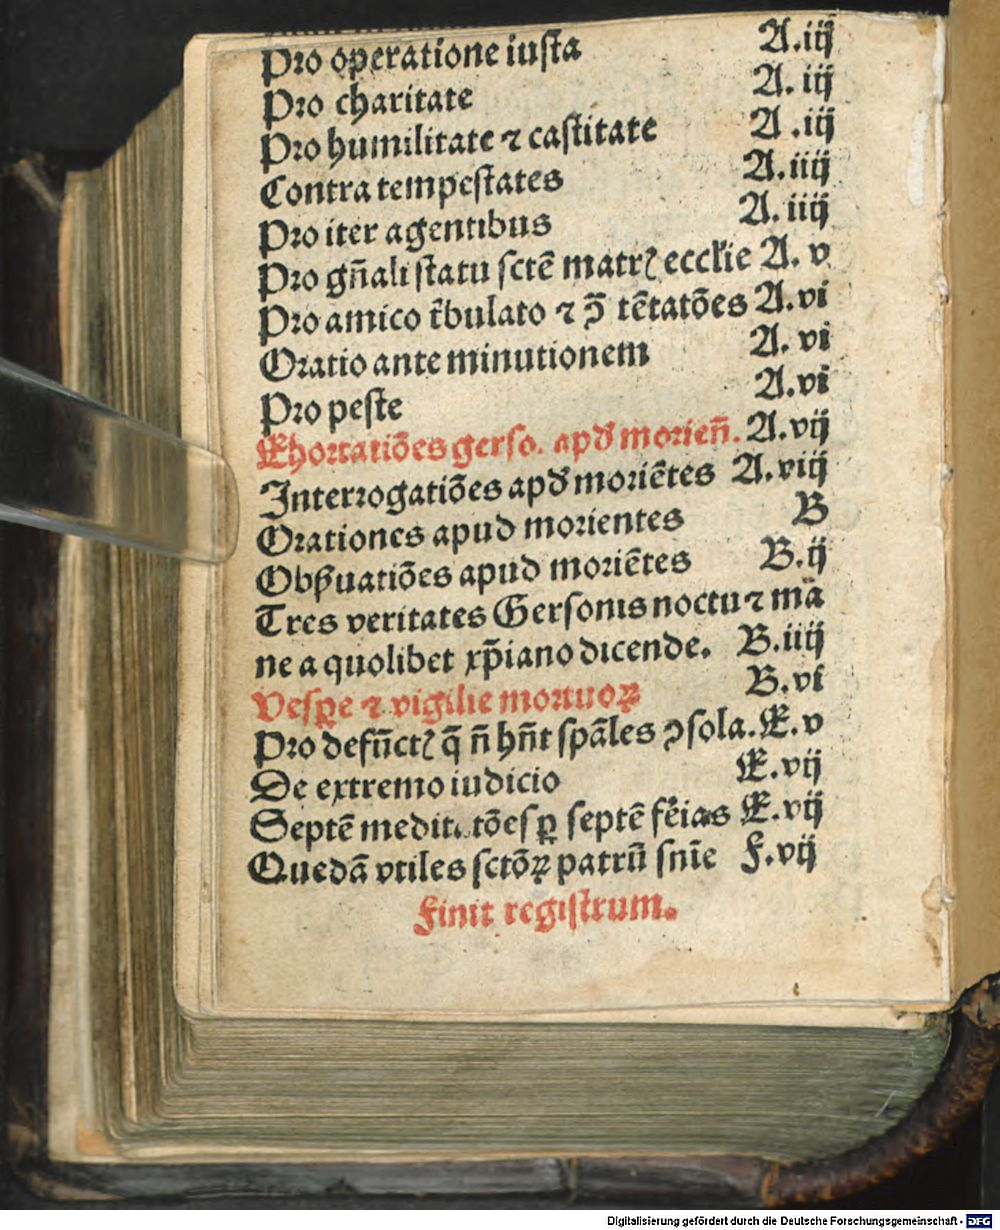 Pro operatione iusta A.iij
Pro charitate A. iij
Pro humilitate ⁊ castitate A .iij
Contra tempestates A.iiij
Pro iter agentibus A. iiij
Pro gn̄ali statu sctē matrꝭ eccłie A. v
Pro amico tr̄bulato ⁊ ꝯ̄ tētatōes A.vi
Oratio ante minutionem A. vi
Pro peste A.vi
Exhortatiōes gerso. apď morien̄. A.vij
Interrogatiōes apď moriētes A.viij
Orationes apud morientes B
Obẞuatiōes apud moriētes B.ij
Tres veritates Gersonis noctu ⁊ mā
ne a quolibet xp̄iano dicende. B.iiij
Vesꝑe ⁊ vigilie mortuoꝝ B.vi
Pro defūctꝭ q̄ n̄ hn̄t spāles ꝯsola. E.v
De extremo iudicio E.vij
Septē meditatōes ꝑ septē fēias E.vij
Quedā vtiles sctōꝝ patrū snīe F.vij
Finit registrum.
Digitalisierung gefördert durch die Deutsche Forschungsgemeinschaft - DFG